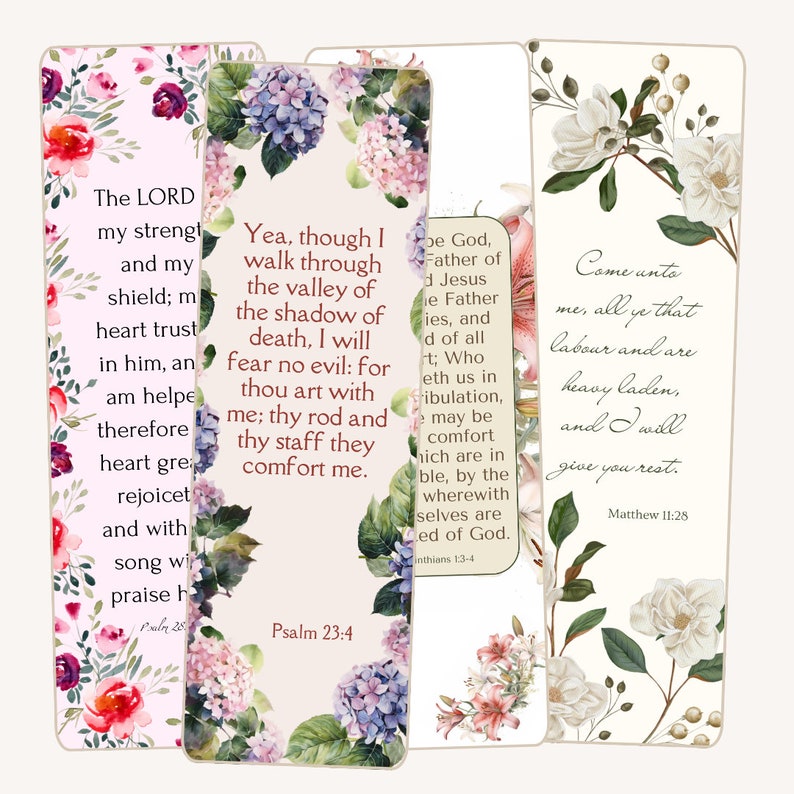 The LORD
my strengt
and my
shield; m
heart trust
in him, an
am helpe
therefore
heart grea
rejoicet
and with
song wi
praise h
Psalm 28:
Yea, though I
walk through
the valley of
the shadow of
death, I will
fear no evil: for
thou art with
me; thy rod and
thy staff they
comfort me.
Psalm 23:4
be God,
Father of
d Jesus
e Father
ies, and
d of all
rt; Who
eth us in
ribulation,
e may be
comfort
hich are in
ble, by the
wherewith
selves are
ed of God.
inthians 1:3-4
Come unto
me, all ye that
labour and are
heavy laden,
and I will
give you rest.
Matthew 11:28